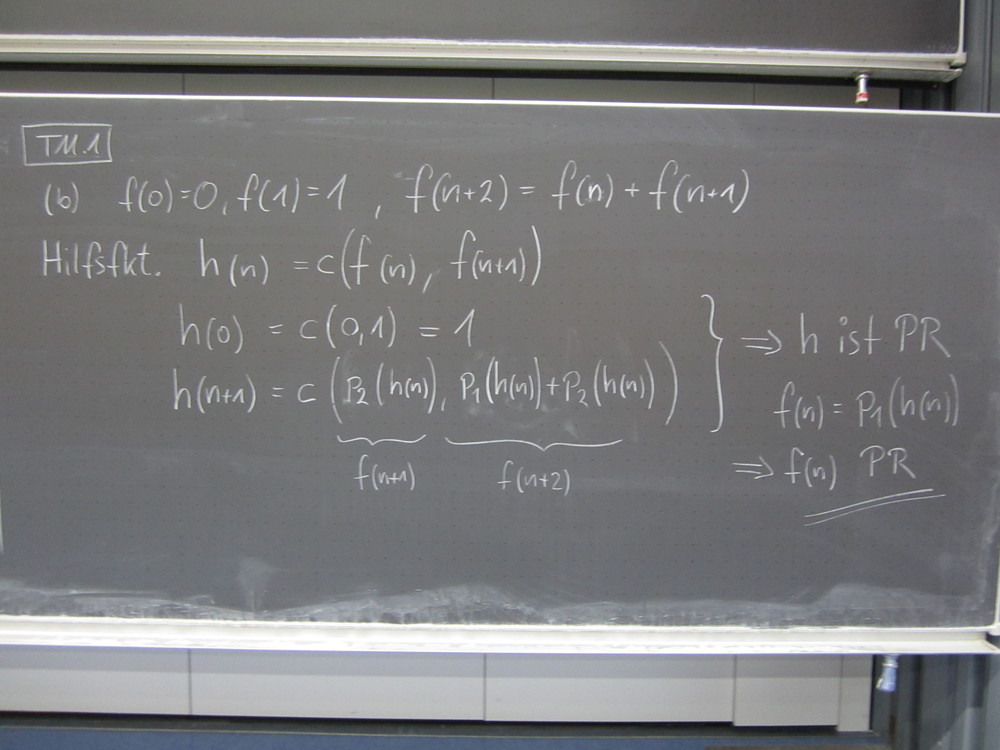 TM.1
(b) f(0)=0, f(1)=1 , f(n+2) = f(n) + f(n+1)
Hilfsfkt. h(n) = c(f(n), f(n+1))
h(0) = c(0,1) = 1
h(n+1) = c(P₂(h(n)), P₁(h(n))+P₂(h(n)))
f(n+1) f(n+2)
} ⇒ h ist PR
f(n) = P₁(h(n))
⇒ f(n) PR